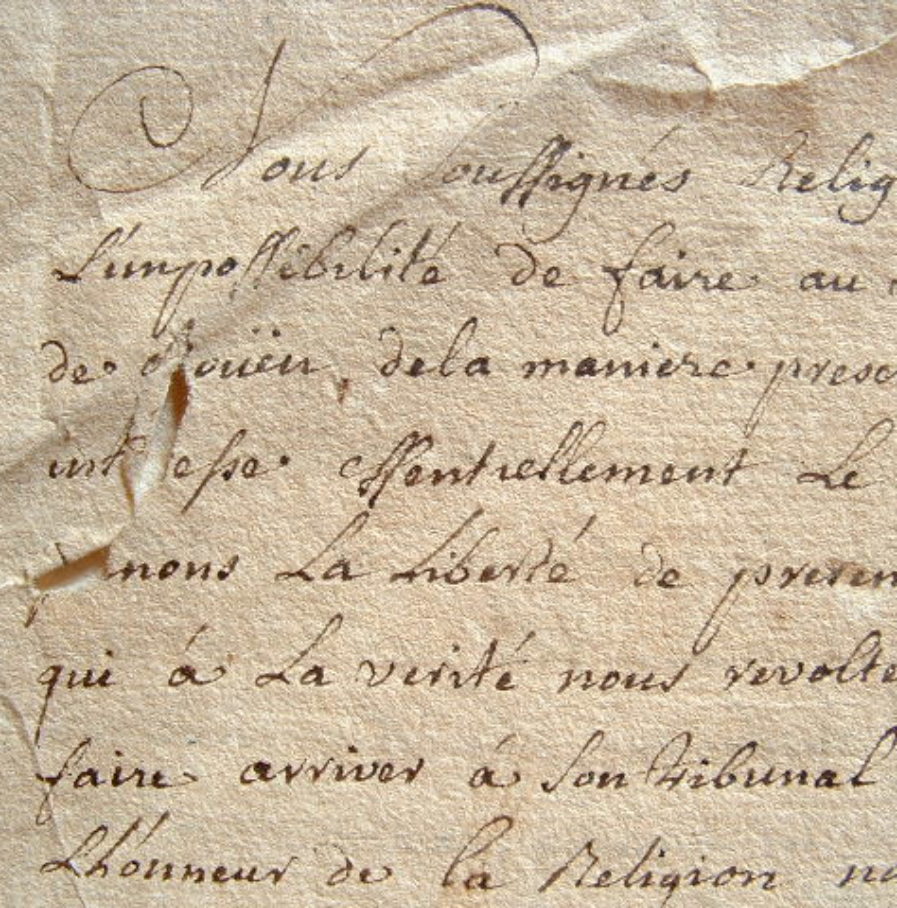 Nous soussignés Relig
L'impossibilité de faire au
de Roüen, dela maniere presc
esse essentiellement Le
nons La Liberté de
qui á La verité nous revolte
faire arriver á son tribunal
Lhónneur de la Religion no